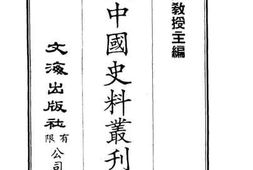 教授主編
中國史料叢刊
文海出版社有限公司